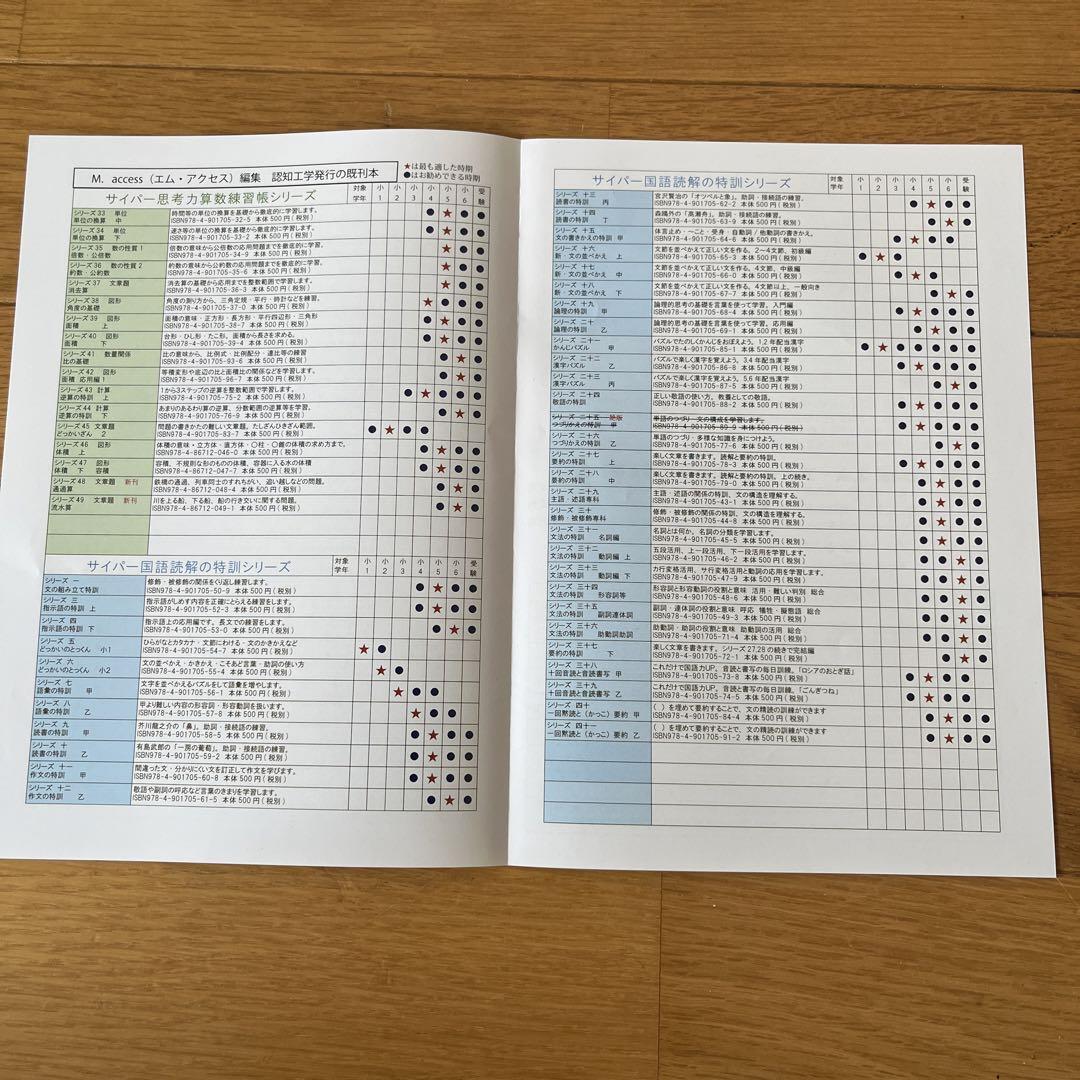 M. access（エム・アクセス）編集　認知工学発行の既刊本
★は最も適した時期
●はお勧めできる時期
サイパー思考力算数練習帳シリーズ
対象学年 小1 小2 小3 小4 小5 小6 受験
シリーズ33　単位
単位の換算　中
時間等の単位の換算を基礎から徹底的に学習します。
ISBN978-4-901705-32-5 本体 500 円（税別） ● ★ ● ●
シリーズ34　単位
単位の換算　下
速さ等の単位の換算を基礎から徹底的に学習します。
ISBN978-4-901705-33-2 本体 500 円（税別） ● ★ ● ●
シリーズ35　数の性質1
倍数・公倍数
倍数の意味から公倍数の応用問題までを徹底的に学習。
ISBN978-4-901705-34-9 本体 500 円（税別） ★ ● ●
シリーズ36　数の性質2
約数・公約数
約数の意味から公約数の応用問題までを徹底的に学習。
ISBN978-4-901705-35-6 本体 500 円（税別） ★ ● ●
シリーズ37　文章題
消去算
消去算の基礎から応用までを整数範囲で学習します。
ISBN978-4-901705-36-3 本体 500 円（税別） ★ ● ●
シリーズ38　図形
角度の基礎
角度の測り方から、三角定規・平行・時計などを練習。
ISBN978-4-901705-37-0 本体 500 円（税別） ★ ● ● ●
シリーズ39　図形
面積　上
面積の意味・正方形・長方形・平行四辺形・三角形
ISBN978-4-901705-38-7 本体 500 円（税別） ● ★ ● ●
シリーズ40　図形
面積　下
台形・ひし形・たこ形。面積から長さを求める。
ISBN978-4-901705-39-4 本体 500 円（税別） ● ★ ● ●
シリーズ41　数量関係
比の基礎
比の意味から、比例式・比例配分・連比等の練習
ISBN978-4-901705-93-6 本体 500 円（税別） ● ★ ●
シリーズ42　図形
面積 応用編1
等積変形や底辺の比と面積比の関係などを学習します。
ISBN978-4-901705-96-7 本体 500 円（税別） ● ★ ●
シリーズ43 計算
逆算の特訓 上
1から3ステップの逆算を整数範囲で学習します。
ISBN978-4-901705-75-2 本体 500 円（税別） ● ★ ● ● ●
シリーズ44 計算
逆算の特訓 下
あまりのあるわり算の逆算、分数範囲の逆算等を学習。
ISBN978-4-901705-76-9 本体 500 円（税別） ● ★ ●
シリーズ45 文章題
どっかいざん 2
問題の書きかたの難しい文章題。たしざんひきざん範囲。
ISBN978-4-901705-83-7 本体 500 円（税別） ● ★ ● ●
シリーズ46　図形
体積　上
体積の意味・立方体・直方体・○柱・○錐の体積の求め方まで。
ISBN978-4-86712-046-0 本体 500 円（税別） ● ★ ● ●
シリーズ47　図形
体積　下　容積
容積、不規則な形のものの体積、容器に入る水の体積
ISBN978-4-86712-047-7 本体 500 円（税別） ● ★ ● ●
シリーズ48　文章題　新刊
通過算
鉄橋の通過、列車同士のすれちがい、追い越しなどの問題。
ISBN978-4-86712-048-4 本体 500 円（税別） ● ★ ●
シリーズ49　文章題 新刊
流水算
川を上る船、下る船、船の行き交いに関する問題。
ISBN978-4-86712-049-1 本体 500 円（税別） ● ★ ●
サイパー国語読解の特訓シリーズ
対象学年 小1 小2 小3 小4 小5 小6 受験
シリーズ 一
文の組み立て特訓
修飾・被修飾の関係をくり返し練習します。
ISBN978-4-901705-50-9 本体 500 円（税別） ● ★ ● ●
シリーズ 三
指示語の特訓 上
指示語がしめす内容を正確にとらえる練習をします。
ISBN978-4-901705-52-3 本体 500 円（税別） ● ★ ● ●
シリーズ 四
指示語の特訓 下
指示語上の応用編です。長文での練習をします。
ISBN978-4-901705-53-0 本体 500 円（税別） ● ★ ●
シリーズ 五
どっかいのとっくん　小1
ひらがなとカタカナ・文節にわける・文のかきかえなど
ISBN978-4-901705-54-7 本体 500 円（税別） ★ ●
シリーズ 六
どっかいのとっくん　小2
文の並べかえ・かきかえ・こそあど言葉・助詞の使い方
ISBN978-4-901705-55-4 本体 500 円（税別） ★ ●
シリーズ 七
語彙の特訓　甲
文字を並べかえるパズルをして語彙を増やします。
ISBN978-4-901705-56-1 本体 500 円（税別） ★ ● ●
シリーズ 八
語彙の特訓　乙
甲より難しい内容の形容詞・形容動詞を扱います。
ISBN978-4-901705-57-8 本体 500 円（税別） ★ ● ●
シリーズ 九
読書の特訓　甲
芥川龍之介の「鼻」。助詞・接続語の練習。
ISBN978-4-901705-58-5 本体 500 円（税別） ● ★ ● ●
シリーズ 十
読書の特訓　乙
有島武郎の「一房の葡萄」。助詞・接続語の練習。
ISBN978-4-901705-59-2 本体 500 円（税別） ● ★ ● ●
シリーズ 十一
作文の特訓　甲
間違った文・分かりにくい文を訂正して作文を学びます。
ISBN978-4-901705-60-8 本体 500 円（税別） ● ★ ● ●
シリーズ 十二
作文の特訓　乙
敬語や副詞の呼応など言葉のきまりを学習します。
ISBN978-4-901705-61-5 本体 500 円（税別） ● ★ ● ●
サイパー国語読解の特訓シリーズ
対象学年 小1 小2 小3 小4 小5 小6 受験
シリーズ 十三
読書の特訓　丙
宮沢賢治の「オツベルと象」。助詞・接続語の練習。
ISBN978-4-901705-62-2 本体 500 円（税別） ● ★ ● ●
シリーズ 十四
読書の特訓　丁
森鴎外の「高瀬舟」。助詞・接続語の練習。
ISBN978-4-901705-63-9 本体 500 円（税別） ● ★ ●
シリーズ 十五
文の書きかえの特訓 甲
体言止め・～こと・受身・自動詞／他動詞の書きかえ。
ISBN978-4-901705-64-6 本体 500 円（税別） ● ★ ● ●
シリーズ 十六
新・文の並べかえ　上
文節を並べかえて正しい文を作る。2～4文節、初級編
ISBN978-4-901705-65-3 本体 500 円（税別） ● ★ ●
シリーズ 十七
新・文の並べかえ　中
文節を並べかえて正しい文を作る。4文節、中級編
ISBN978-4-901705-66-0 本体 500 円（税別） ● ★ ●
シリーズ 十八
新・文の並べかえ　下
文節を並べかえて正しい文を作る。4文節以上、一般向き
ISBN978-4-901705-67-7 本体 500 円（税別） ● ★ ●
シリーズ 十九
論理の特訓　甲
論理的思考の基礎を言葉を使って学習。入門編
ISBN978-4-901705-68-4 本体 500 円（税別） ● ★ ● ● ●
シリーズ 二十
論理の特訓　乙
論理的思考の基礎を言葉を使って学習。応用編
ISBN978-4-901705-69-1 本体 500 円（税別） ● ★ ● ●
シリーズ 二十一
かんじパズル　甲
パズルでたのしくかんじをおぼえよう。1,2年配当漢字
ISBN978-4-901705-85-1 本体 500 円（税別） ● ★ ● ● ● ● ●
シリーズ 二十二
漢字パズル　乙
パズルで楽しく漢字を覚えよう。3,4年配当漢字
ISBN978-4-901705-86-8 本体 500 円（税別） ● ★ ● ● ●
シリーズ 二十三
漢字パズル　丙
パズルで楽しく漢字を覚えよう。5,6年配当漢字
ISBN978-4-901705-87-5 本体 500 円（税別） ● ★ ●
シリーズ 二十四
敬語の特訓
正しい敬語の使い方。教養としての敬語。
ISBN978-4-901705-88-2 本体 500 円（税別） ● ★ ● ● ●
シリーズ 二十五　絶版
つづりかえの特訓　甲
単語のつづり・文の構成を学習します。
ISBN978-4-901705-89-9 本体 500 円（税別） ● ★ ● ● ●
シリーズ 二十六
つづりかえの特訓　乙
単語のつづり・多様な知識を身につけよう。
ISBN978-4-901705-77-6 本体 500 円（税別） ● ★ ● ●
シリーズ 二十七
要約の特訓　上
楽しく文章を書きます。読解と要約の特訓。
ISBN978-4-901705-78-3 本体 500 円（税別） ● ★ ● ● ●
シリーズ 二十八
要約の特訓　中
楽しく文章を書きます。読解と要約の特訓。上の続き。
ISBN978-4-901705-79-0 本体 500 円（税別） ● ★ ● ●
シリーズ 二十九
主語・述語専科
主語・述語の関係の特訓、文の構造を理解する。
ISBN978-4-901705-43-1 本体 500 円（税別） ● ★ ● ●
シリーズ 三十
修飾・被修飾専科
修飾・被修飾の関係の特訓、文の構造を理解する。
ISBN978-4-901705-44-8 本体 500 円（税別） ● ★ ● ●
シリーズ 三十一
文法の特訓　名詞編
名詞とは何か。名詞の分類を学習します。
ISBN978-4-901705-45-5 本体 500 円（税別） ● ★ ● ●
シリーズ 三十二
文法の特訓　動詞編 上
五段活用、上一段活用、下一段活用を学習します。
ISBN978-4-901705-46-2 本体 500 円（税別） ● ★ ●
シリーズ 三十三
文法の特訓　動詞編 下
カ行変格活用、サ行変格活用と動詞の応用を学習します。
ISBN978-4-901705-47-9 本体 500 円（税別） ● ★ ●
シリーズ 三十四
文法の特訓　形容詞等
形容詞と形容動詞の役割と意味 活用・難しい判別 総合
ISBN978-4-901705-48-6 本体 500 円（税別） ● ★ ●
シリーズ 三十五
文法の特訓　副詞連体詞
副詞・連体詞の役割と意味 呼応 犠牲・擬態語 総合
ISBN978-4-901705-49-3 本体 500 円（税別） ● ★ ●
シリーズ 三十六
文法の特訓　助動詞助詞
助動詞・助詞の役割と意味 助動詞の活用　総合
ISBN978-4-901705-71-4 本体 500 円（税別） ● ★ ●
シリーズ 三十七
要約の特訓　下
楽しく文章を書きます。シリーズ27,28の続きで完結編
ISBN978-4-901705-72-1 本体 500 円（税別） ● ★ ●
シリーズ 三十八
十回音読と音読書写 甲
これだけで国語力UP。音読と書写の毎日訓練。「ロシアのおとぎ話」
ISBN978-4-901705-73-8 本体 500 円（税別） ● ★ ● ●
シリーズ 三十九
十回音読と音読書写 乙
これだけで国語力UP。音読と書写の毎日訓練。「ごんぎつね」
ISBN978-4-901705-74-5 本体 500 円（税別） ● ★ ● ●
シリーズ 四十
一回黙読と（かっこ）要約　甲
（ ）を埋めて要約することで、文の精読の訓練ができます
ISBN978-4-901705-84-4 本体 500 円（税別） ● ★ ● ●
シリーズ 四十一
一回黙読と（かっこ）要約　乙
（ ）を埋めて要約することで、文の精読の訓練ができます
ISBN978-4-901705-91-2 本体 500 円（税別） ● ★ ● ●